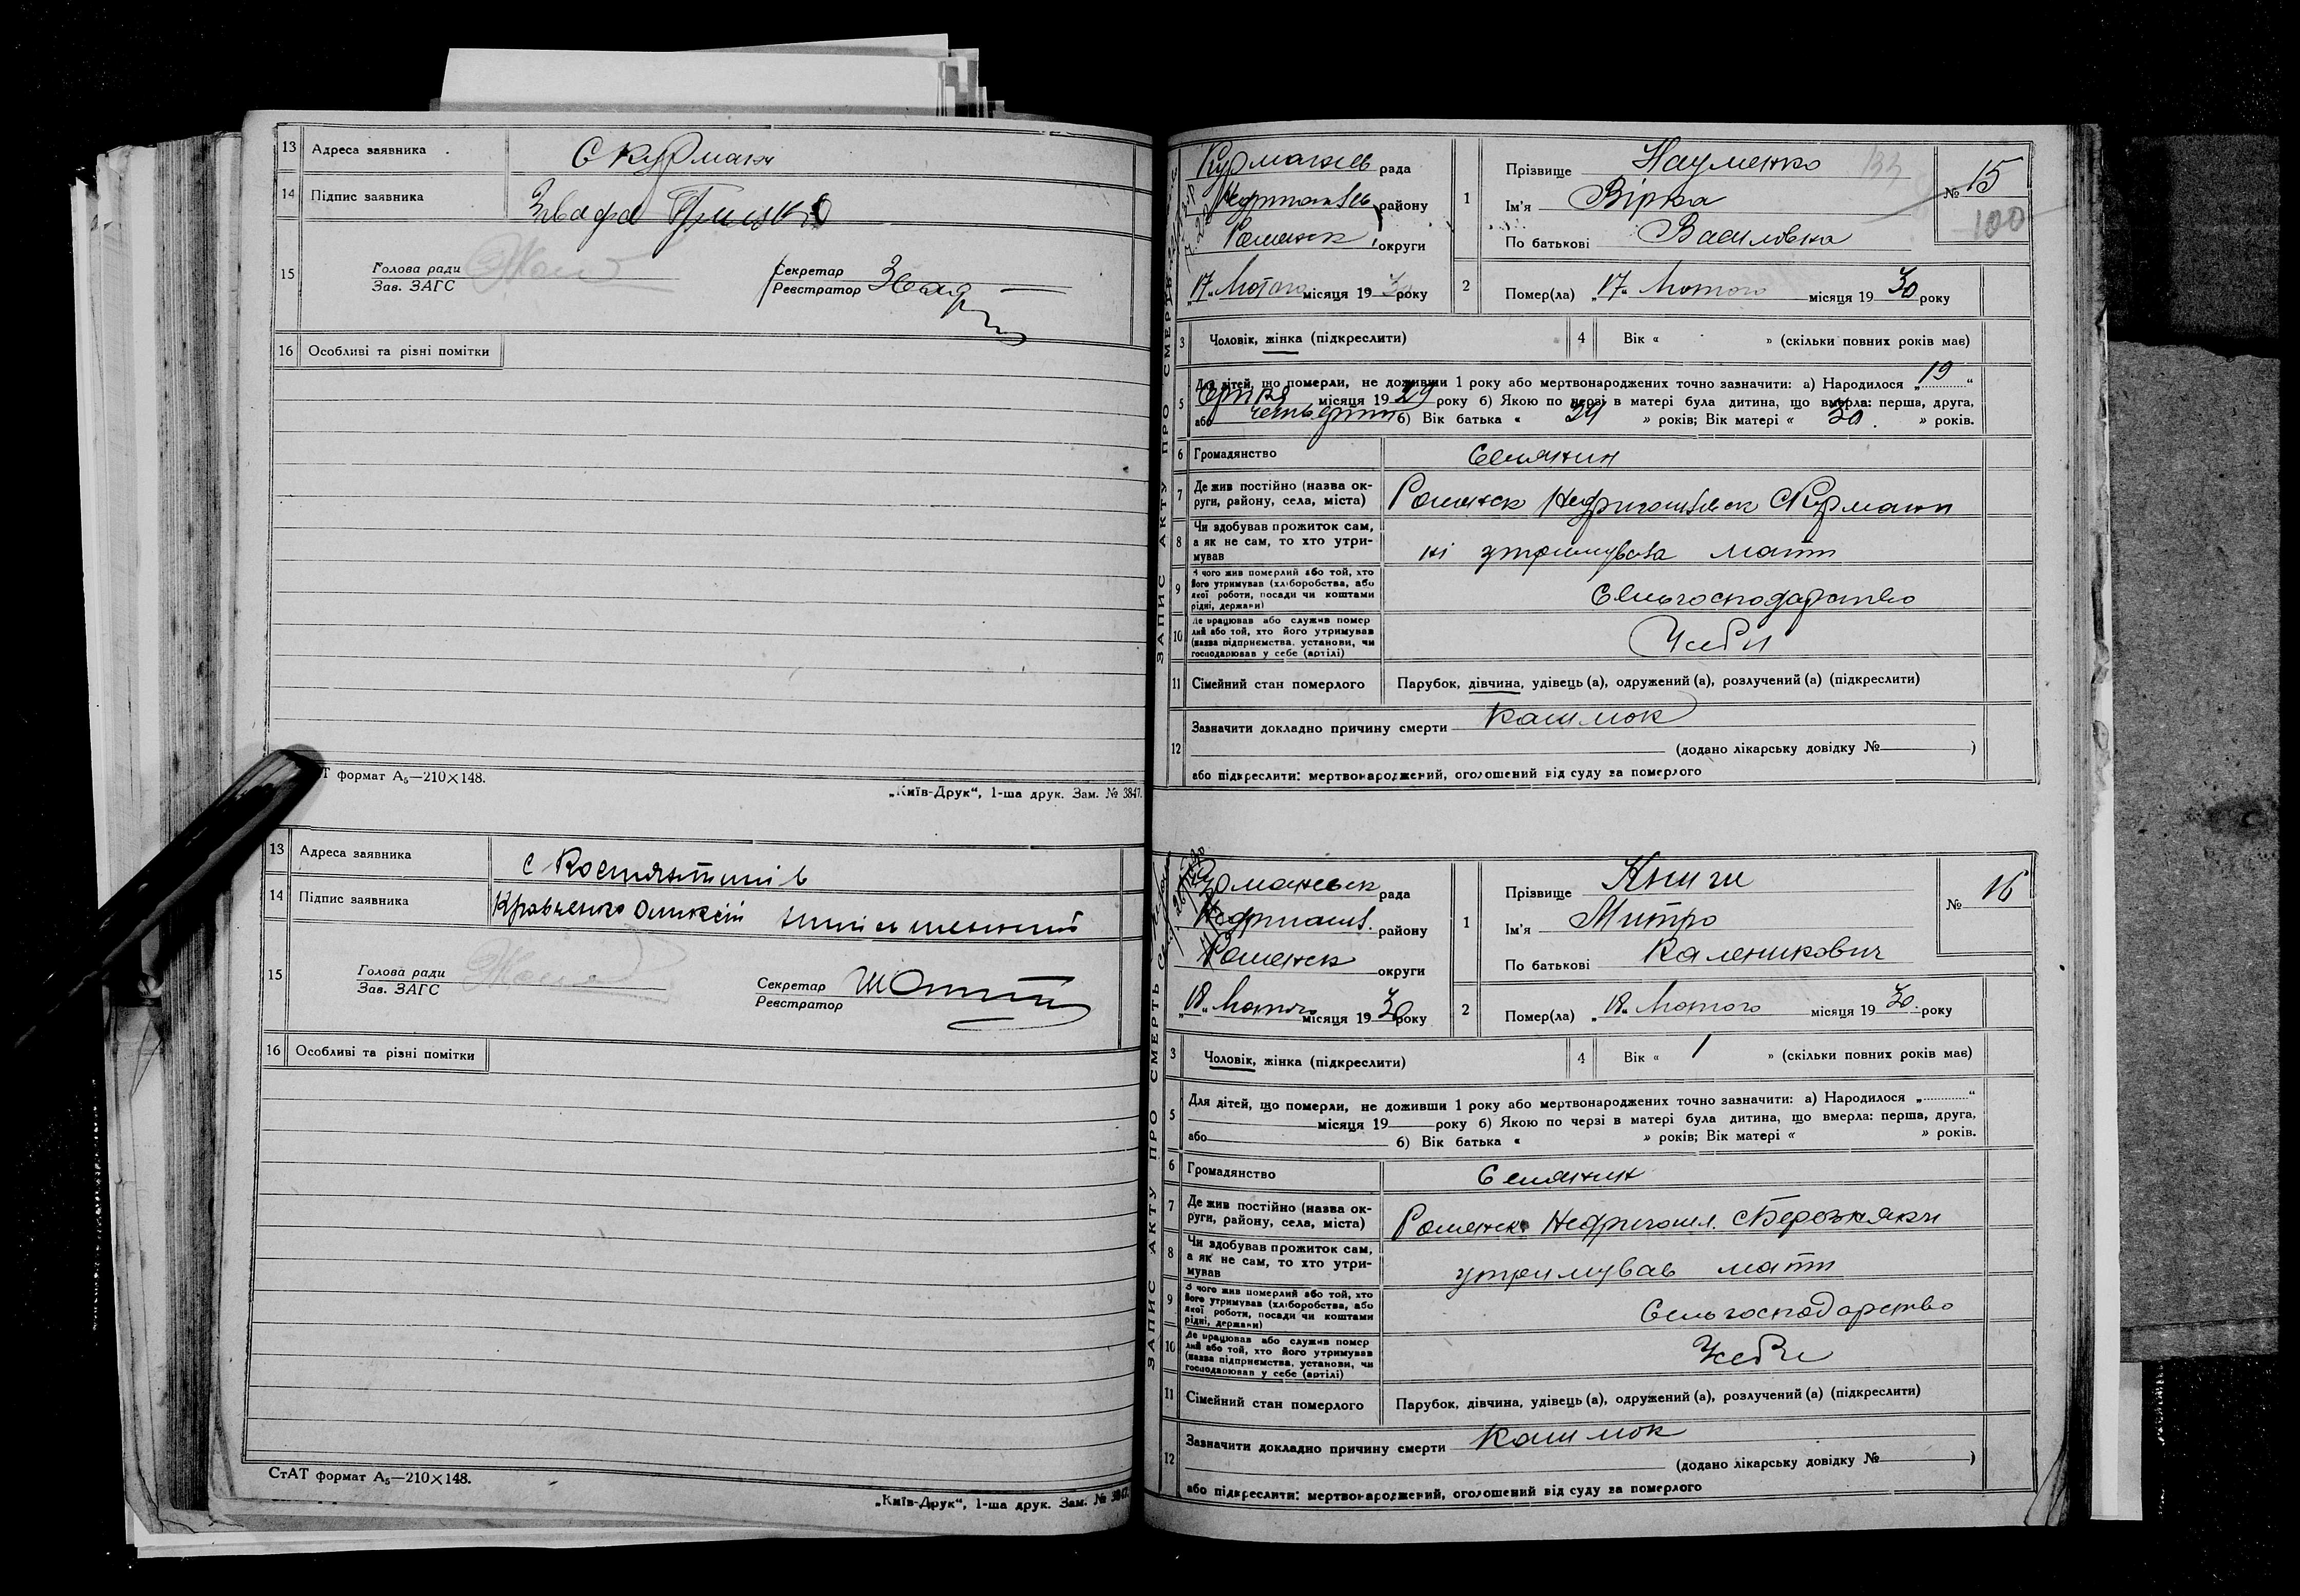 13 Адреса заявника с Курмани
14 Підпис заявника
15 Голова ради
Зав. ЗАГС
Секретар
Реєстратор
16 Особливі та різні помітки
Т формат А₅—210×148.
„Київ-Друк“, 1-ша друк. Зам. № 3847.
13 Адреса заявника с Костянтинів
14 Підпис заявника Кравченко
15 Голова ради
Зав. ЗАГС
Секретар
Реєстратор
16 Особливі та різні помітки
СтАТ формат А₅—210×148.
„Київ-Друк“, 1-ша друк. Зам. № 3847.
ЗАПИС АКТУ ПРО СМЕРТЬ
рада
району
Роменськ округи
„17“ Лютого місяця 19 30 року
1 Прізвище Науменко
Ім'я Вірка
По батькові Василовна
№ 15
133
100
2 Помер(ла) „17“ Лютого місяця 19 30 року
3 Чоловік, жінка (підкреслити)
4 Вік « » (скільки повних років має)
5 Для дітей, що померли, не доживши 1 року або мертвонароджених точно зазначити: а) Народилося „19“
місяця 19 29 року б) Якою по черзі в матері була дитина, що вмерла: перша, друга,
або б) Вік батька « » років; Вік матері « 30 » років.
6 Громадянство Селянин
7 Де жив постійно (назва округи, району, села, міста) Роменськ с Курмани
8 Чи здобував прожиток сам, а як не сам, то хто утримував ні утримувала мати
9 З чого жив померлий або той, хто його утримував (хліборобства, або якої роботи, посади чи коштами рідні, держави) Сельгосподарство
10 Де працював або служив померлий або той, хто його утримував (назва підприємства, установи, чи господарював у себе (артілі) У себи
11 Сімейний стан померлого Парубок, дівчина, удівець (а), одружений (а), розлучений (а) (підкреслити)
12 Зазначити докладно причину смерти кашлюк
(додано лікарську довідку № )
або підкреслити: мертвонароджений, оголошений від суду за померлого
ЗАПИС АКТУ ПРО СМЕРТЬ
рада
району
Роменск округи
„18“ Лютого місяця 19 30 року
1 Прізвище Книги
Ім'я Митро
По батькові Каленикович
№ 16
2 Помер(ла) „18“ Лютого місяця 19 30 року
3 Чоловік, жінка (підкреслити)
4 Вік « 1 » (скільки повних років має)
5 Для дітей, що померли, не доживши 1 року або мертвонароджених точно зазначити: а) Народилося „ “
місяця 19 року б) Якою по черзі в матері була дитина, що вмерла: перша, друга,
або б) Вік батька « » років; Вік матері « » років.
6 Громадянство Селянин
7 Де жив постійно (назва округи, району, села, міста) Роменск Недригайл. с Березняки
8 Чи здобував прожиток сам, а як не сам, то хто утримував утримував мати
9 З чого жив померлий або той, хто його утримував (хліборобства, або якої роботи, посади чи коштами рідні, держави) Сельгосподарство
10 Де працював або служив померлий або той, хто його утримував (назва підприємства, установи, чи господарював у себе (артілі) У себе
11 Сімейний стан померлого Парубок, дівчина, удівець (а), одружений (а), розлучений (а) (підкреслити)
12 Зазначити докладно причину смерти кашлюк
(додано лікарську довідку № )
або підкреслити: мертвонароджений, оголошений від суду за померлого